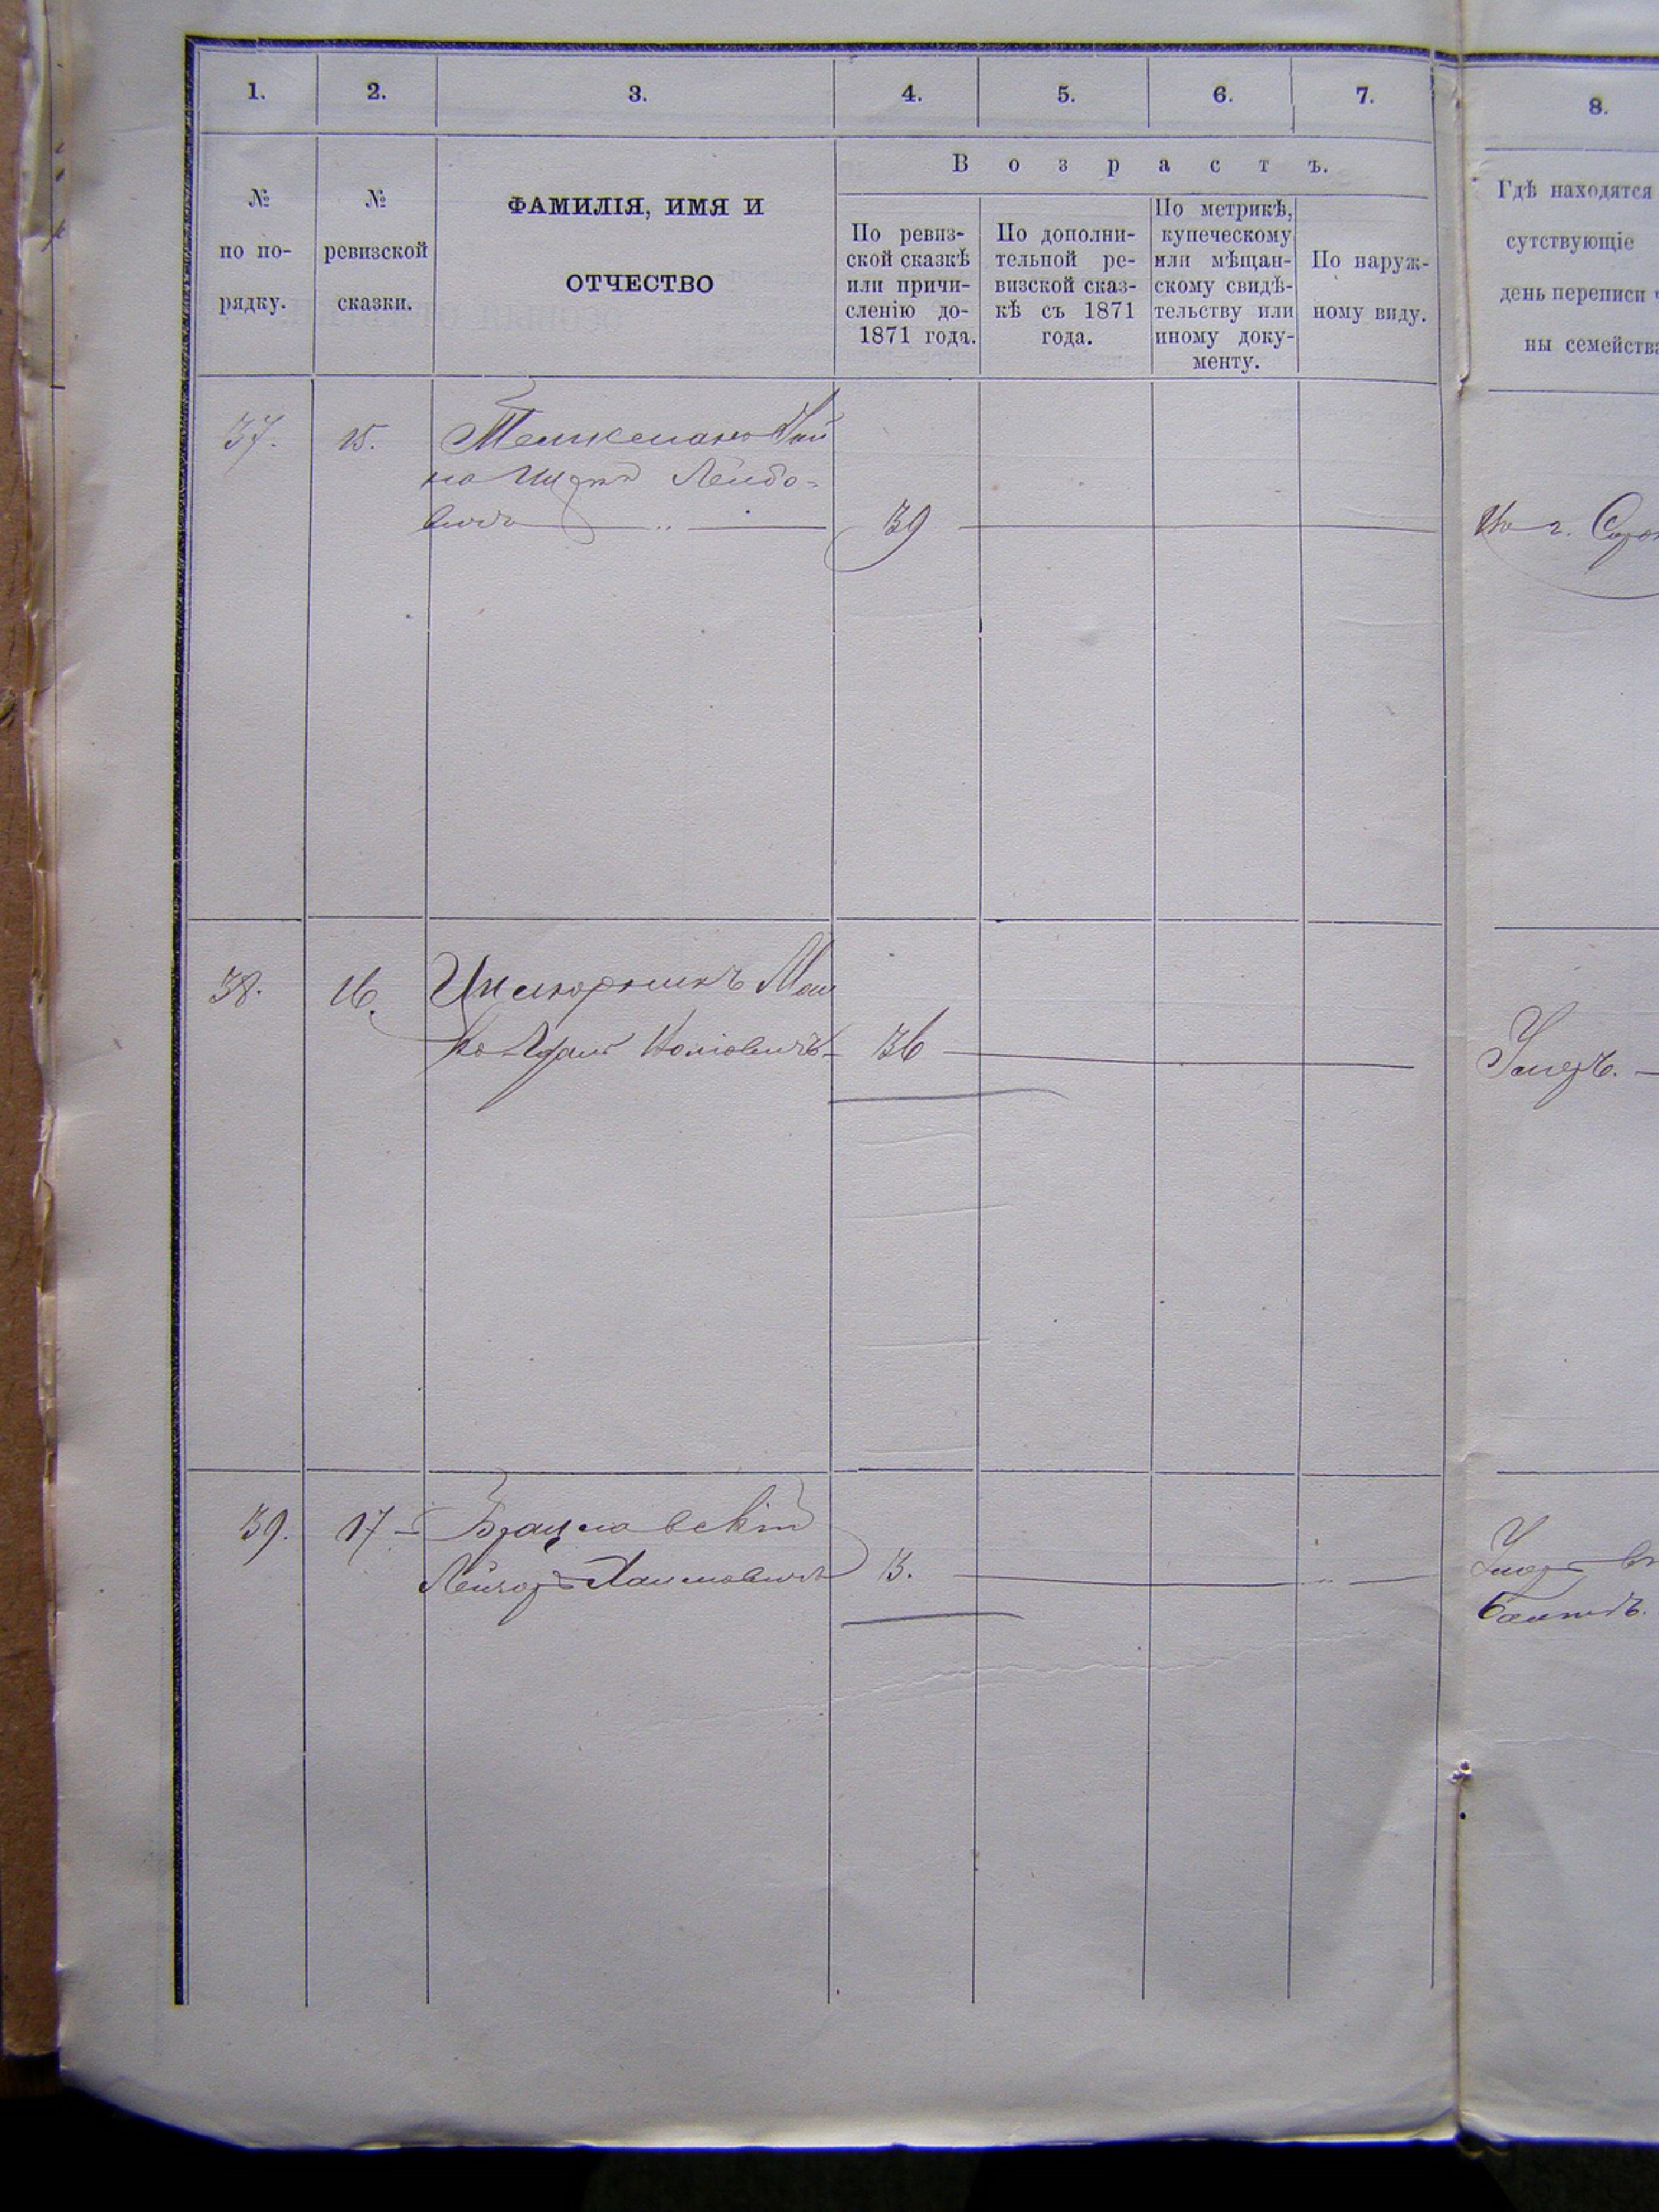 1. 2. 3. 4. 5. 6. 7. 8.
Возрастъ.
№
по по-
рядку.
№
ревизской
сказки.
ФАМИЛІЯ, ИМЯ И
ОТЧЕСТВО
По ревиз-
ской сказкѣ
или причи-
сленію до-
1871 года.
По дополни-
тельной ре-
визской сказ-
кѣ съ 1871
года.
По метрикѣ,
купеческому
или мѣщан-
скому свидѣ-
тельству или
иному доку-
менту.
По наруж-
ному виду.
Гдѣ находятся
сутствующіе
день переписи
ны семейства
37. 15.
Лейбо-
вичъ 39
38. 16.
36 Умеръ.
39. 17 Брацлавскій
Лейзоръ Хаимовичъ 13.